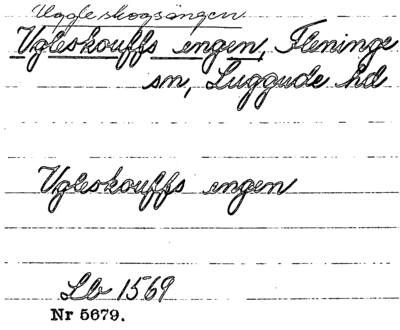 Uggleskogsängen
Ugleskouffs engen, Fleninge
sn, Luggude hd
Ugleskouffs engen
Lb 1569
Nr 5679.